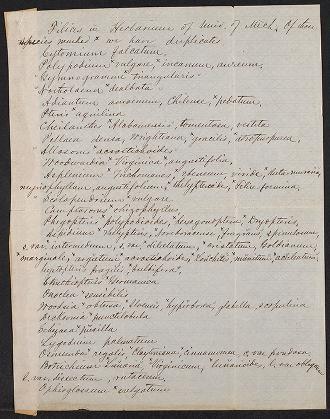 Filices in Herbarium of Univ. of Mich. Of those
species marked * we have duplicates.
Cyrtomium falcatum.
Polypodium *vulgare, *incanum, aureum,
*Gymnogramme triangularis
*Notholaena *dealbata
Adiantum amoenum, Chilense, *pedatum.
Pteris aquilina
Cheilanthes *Alabamensis, tomentosa, vestita
Pellaea densa, Wrightiana, *gracilis, *atropurpurea,
*Allosorus *acrostichoides
Woodwardia *Virginica, *angustifolia,
Asplenium *Trichomanes, *ebeneum, viride, *Ruta-muraria,
myriophyllum, angustifolium, *thelypteoides, *Felix-femina,
Scolopendrium *vulgare
Camptosorus *rhizophyllus
Phegopteris *polypodioides, *hexagonoptera, *Dryopteris,
Aspidium *Thelypteris, *Noveboracense, *fragrans, *spinulosum,
s. var. intermedium, s. var. *dilatatum, *cristatum, Goldianum,
*marginale, *argutum, *acrostichoides, *Lonchitis, *munitum, aculeatum,
Cystopteris fragilis, *bulbifera,
Struthiopteris *Germanica
Onoclea *sensibilis
Woodsia *obtusa, *Ilvensis, hyperborea, glabella, scopulina
Dicksonia *punctilobula
Schizaea *pusilla
Lygodium palmatum
Osmunda *regalis, Claytoniana, *cinnamomea, c. var. frondosa
Botrychium *Lunaria, *Virginicum, *lunarioides, l. var. obliquum,
l. var. dissectum, rutaceum,
Ophioglossum *vulgatum